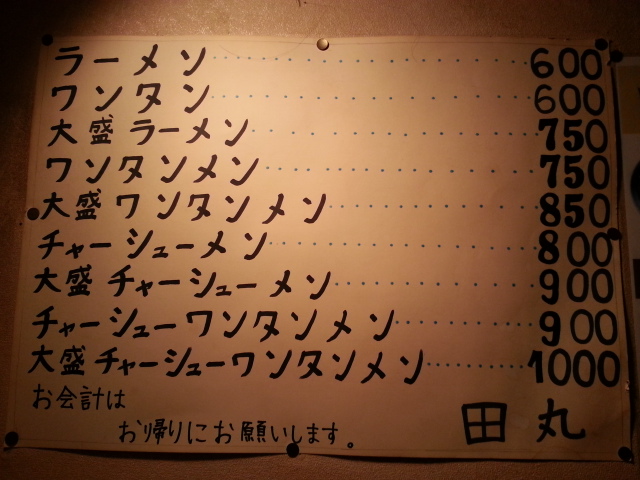 ラーメン 600
ワンタン 600
大盛ラーメン 750
ワンタンメン 750
大盛ワンタンメン 850
チャーシューメン 800
大盛チャーシューメン 900
チャーシューワンタンメン 900
大盛チャーシューワンタンメン 1000
お会計は
お帰りにお願いします。
田丸